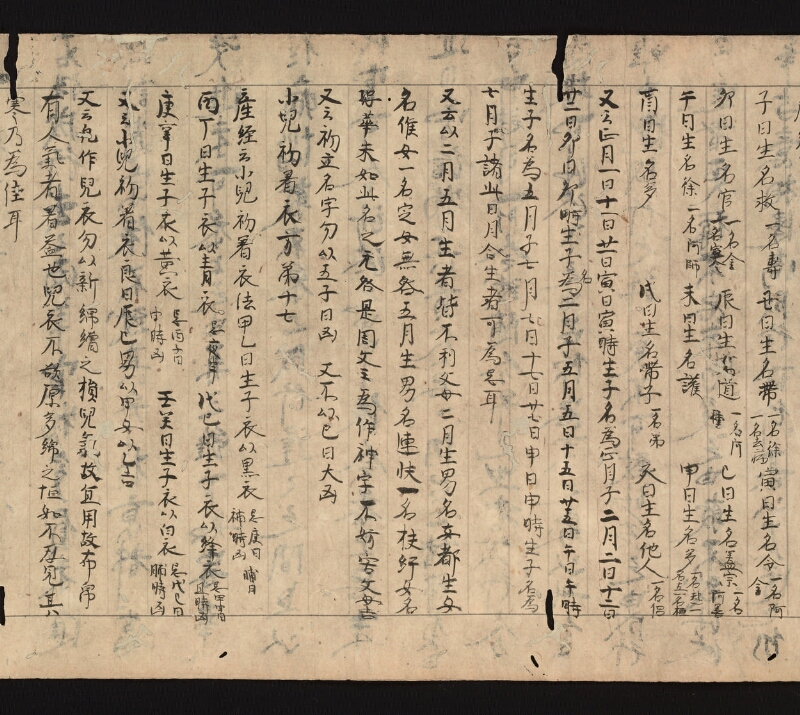 子日生名救一名壽 丑日生名帶一名徐 寅日生名令一名阿金
卯日生名官一名金 辰日生 道一名阿 巳日生名蓋宗一名阿善
午日生名徐一名阿師 未日生名護 申日生名多
酉日生名多 戌日生名帶子一名弟 亥日生名他人一名侶
又云正月一日十一日廿一日寅日寅時生子名為正月子二月二日十二日
廿二日卯日卯時生子名為二月子五月五日十五日廿五日午日午時
生子名為五月子七月七日十七日廿七日申日申時生子名為
七月子諸此日月合生者可為忌耳
又云以二月五月生者皆不利父母二月生男名安都生女
名 女一名定女無咎五月生男名連快一名 女名
華未如此名之無咎是周文王為作神字不妨害父母吉
又云初立名字勿以五子日凶 又不以巳日大凶
小兒初著衣方第十七
產經云小兒初著衣法甲乙日生子衣以黑衣忌庚日晡時凶
丙丁日生子衣以青衣忌 戊己日生子衣以絳衣忌甲 日 時凶
庚辛日生子衣以黃衣忌丙丁日 時凶 壬癸日生子衣以白衣忌戊己日 時凶
又云小兒初著衣 日辰巳男以甲女以乙吉
又云凡作兒衣勿以新綿繒之損兒氣故宜用故布帛
有人氣者著益也兒衣不 厚多綿之恒如不 其
寒乃為佳耳